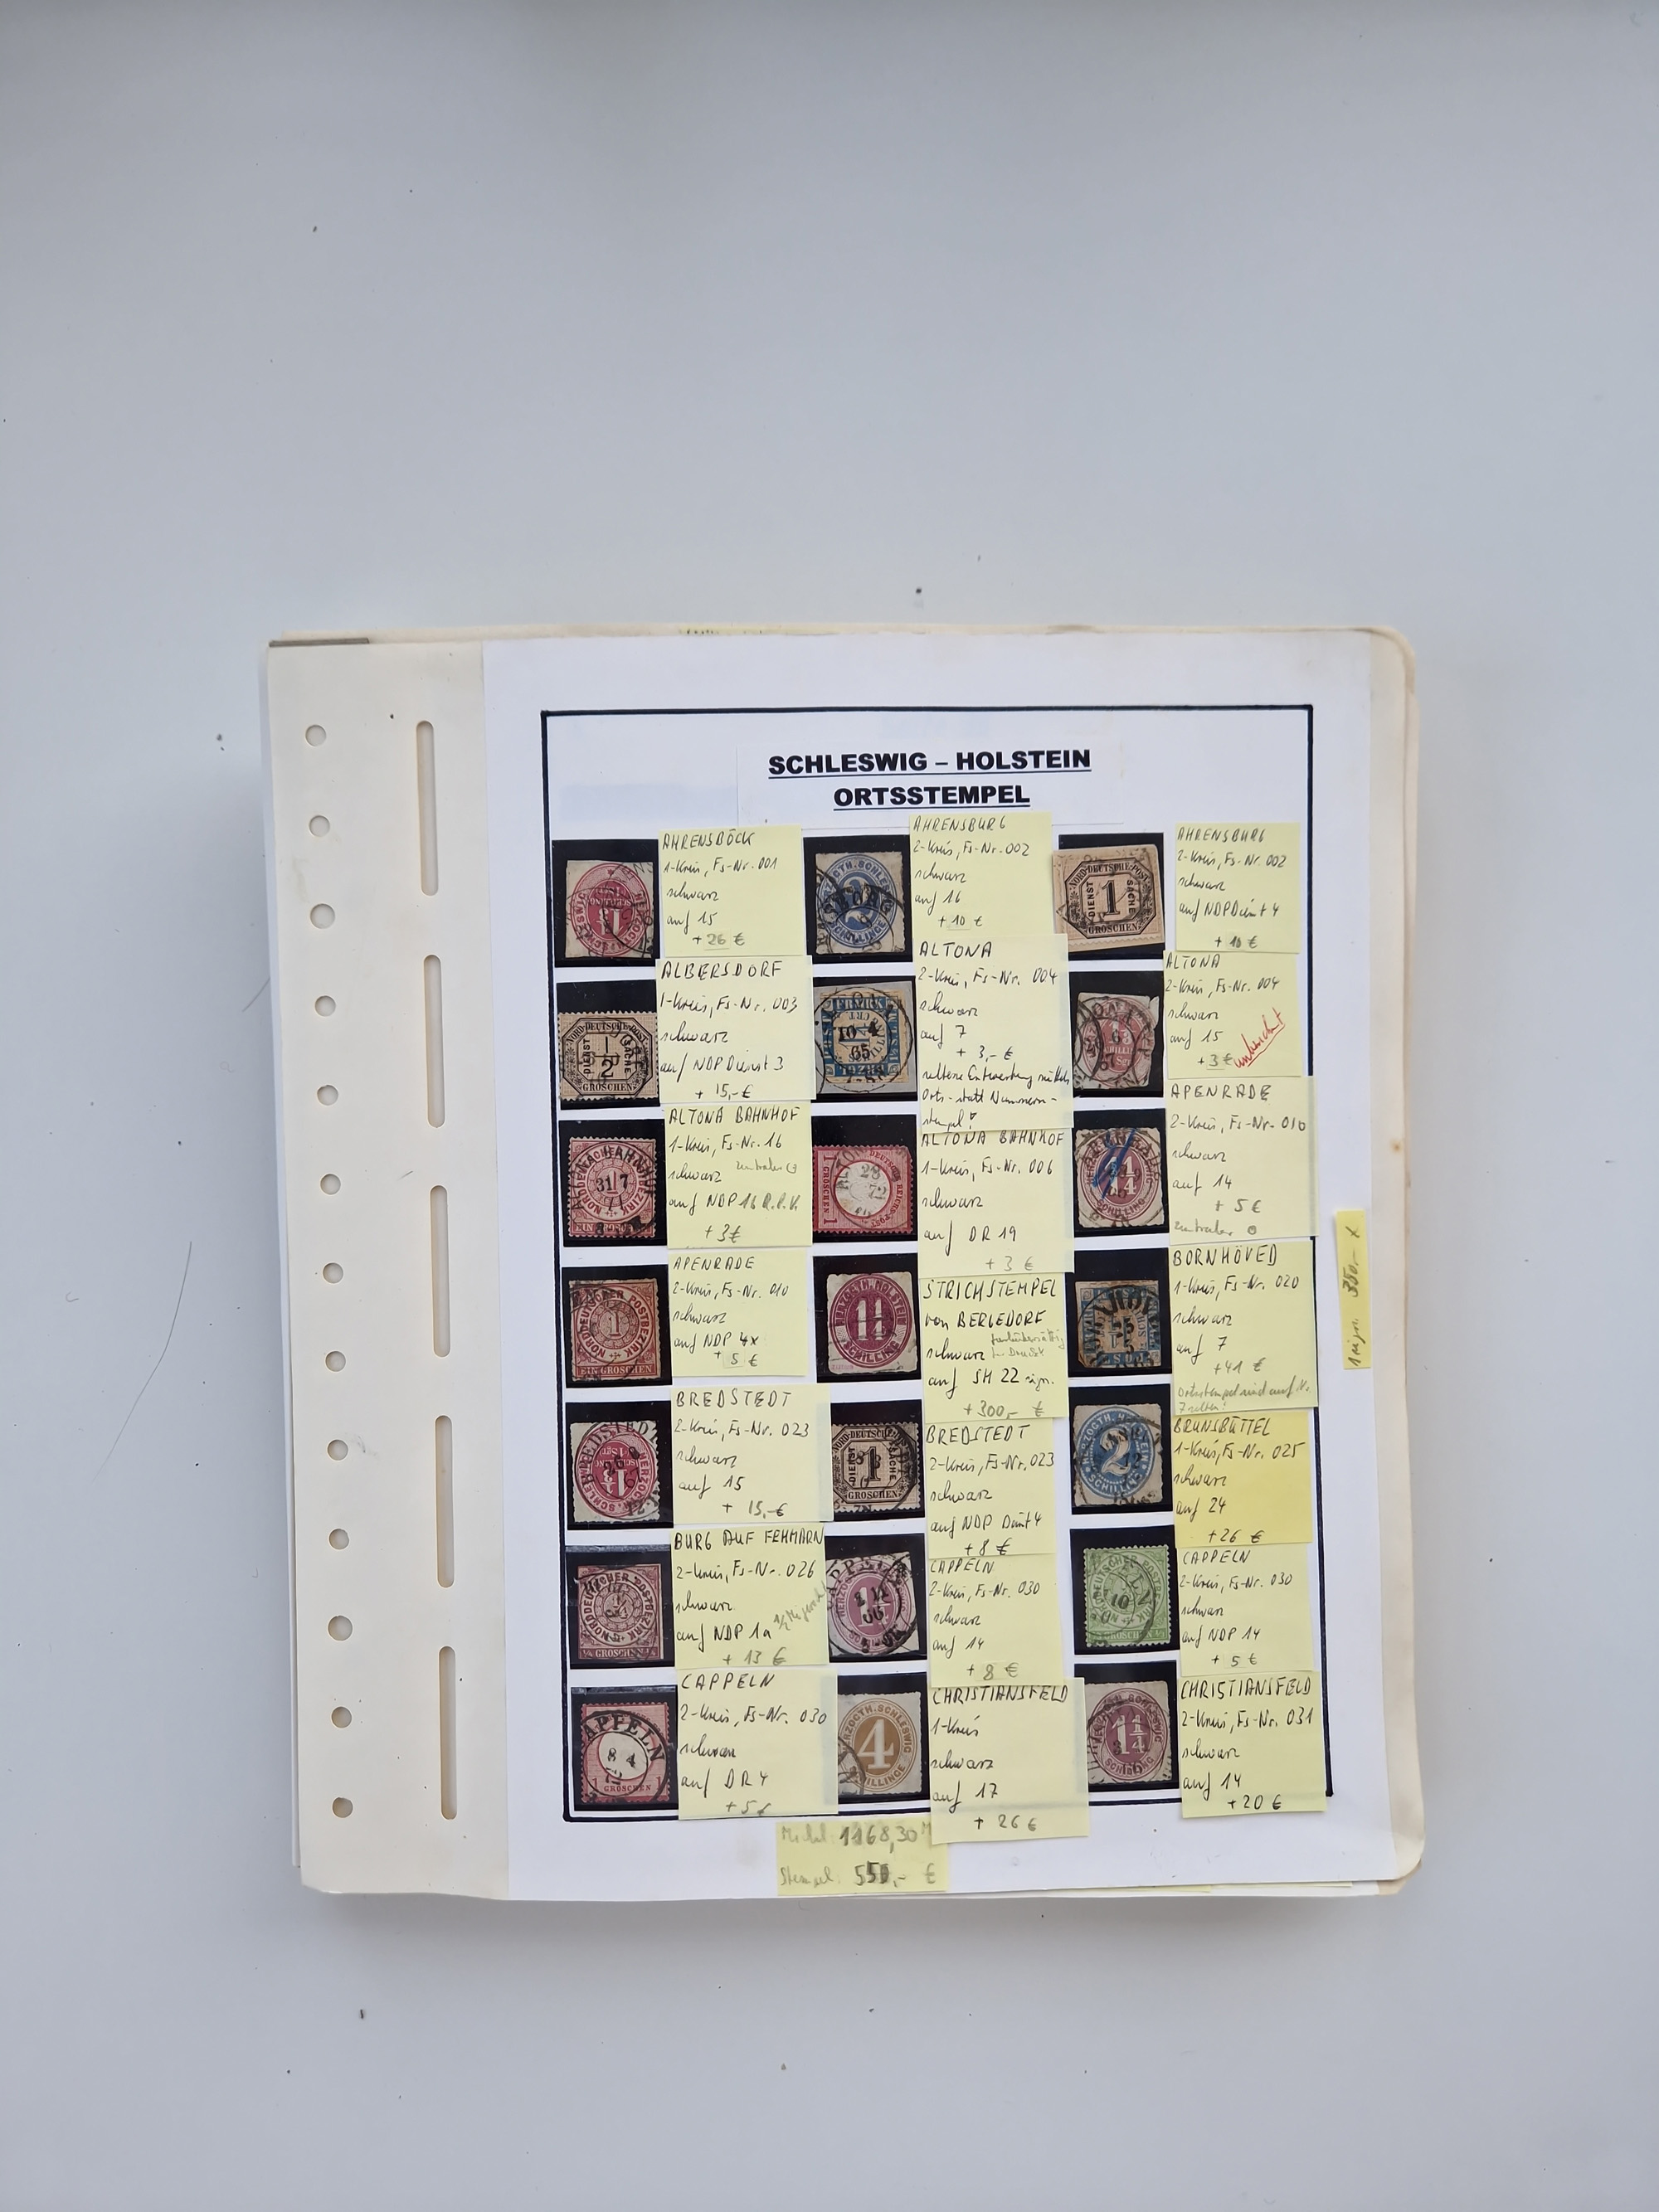 SCHLESWIG – HOLSTEIN
ORTSSTEMPEL
AHRENSBÖCK
1-Kreis, Fs-Nr. 001
schwarz
auf 15
+ 26 €
AHRENSBURG
2-Kreis, Fs-Nr. 002
schwarz
auf 16
+ 10 €
AHRENSBURG
2-Kreis, Fs-Nr. 002
schwarz
auf NDP Dienst 4
+ 10 €
NORDDEUTSCHE POST
DIENST SACHE
1
GROSCHEN
ALBERSDORF
1-Kreis, Fs-Nr. 003
schwarz
auf NDP Dienst 3
+ 15,- €
NORDDEUTSCHE POST
DIENST SACHE
1/2
GROSCHEN
ALTONA
2-Kreis, Fs-Nr. 004
schwarz
auf 7
+ 3,- €
seltene Entwertung mittels
Orts- statt Nummern-
stempel!
ALTONA
2-Kreis, Fs-Nr. 004
schwarz
auf 15
+ 3 €
ALTONA BAHNHOF
1-Kreis, Fs-Nr. 16
schwarz
auf NDP 16
+ 3 €
ALTONA BAHNHOF
1-Kreis, Fs-Nr. 006
schwarz
auf DR 19
+ 3 €
APENRADE
2-Kreis, Fs-Nr. 010
schwarz
auf 14
+ 5 €
APENRADE
2-Kreis, Fs-Nr. 010
schwarz
auf NDP 4x
+ 5 €
STRICHSTEMPEL
von BERGEDORF
schwarz
auf SH 22 sign.
+ 300,- €
BORNHÖVED
1-Kreis, Fs-Nr. 020
schwarz
auf 7
+ 41 €
Ortsstempel sind auf Nr.
7 selten!
BREDSTEDT
2-Kreis, Fs-Nr. 023
schwarz
auf 15
+ 15,- €
BREDSTEDT
2-Kreis, Fs-Nr. 023
schwarz
auf NDP Dienst 4
+ 8 €
BRUNSBÜTTEL
1-Kreis, Fs-Nr. 025
schwarz
auf 24
+ 26 €
BURG AUF FEHMARN
2-Kreis, Fs-Nr. 026
schwarz
auf NDP 1a
+ 13 €
CAPPELN
2-Kreis, Fs-Nr. 030
schwarz
auf 14
+ 8 €
CAPPELN
2-Kreis, Fs-Nr. 030
schwarz
auf NDP 14
+ 5 €
CAPPELN
2-Kreis, Fs-Nr. 030
schwarz
auf DR 4
+ 5 €
CHRISTIANSFELD
1-Kreis
schwarz
auf 17
+ 26 €
CHRISTIANSFELD
2-Kreis, Fs-Nr. 031
schwarz
auf 14
+ 20 €
1 sign. 350.- x
Michel: 1168,30 M
Stempel: 550,- €